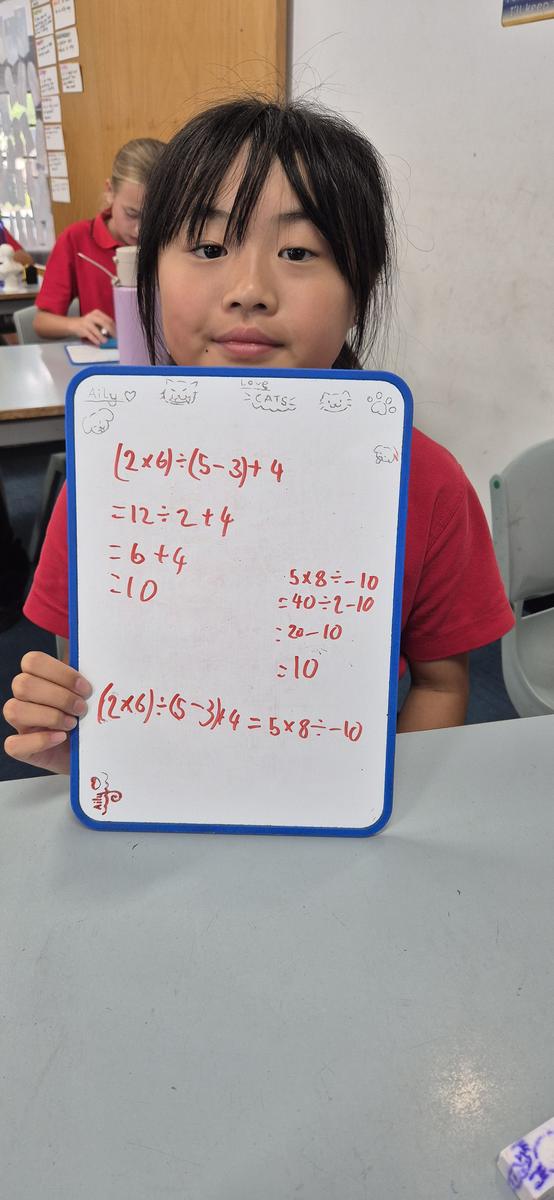 I'll keep
Aily ♡
Love
CATS
(2×6)÷(5-3)+4
=12÷2+4
=6+4
=10
5×8÷-10
=40÷2-10
=20-10
=10
(2×6)÷(5-3)+4=5×8÷-10
Aily